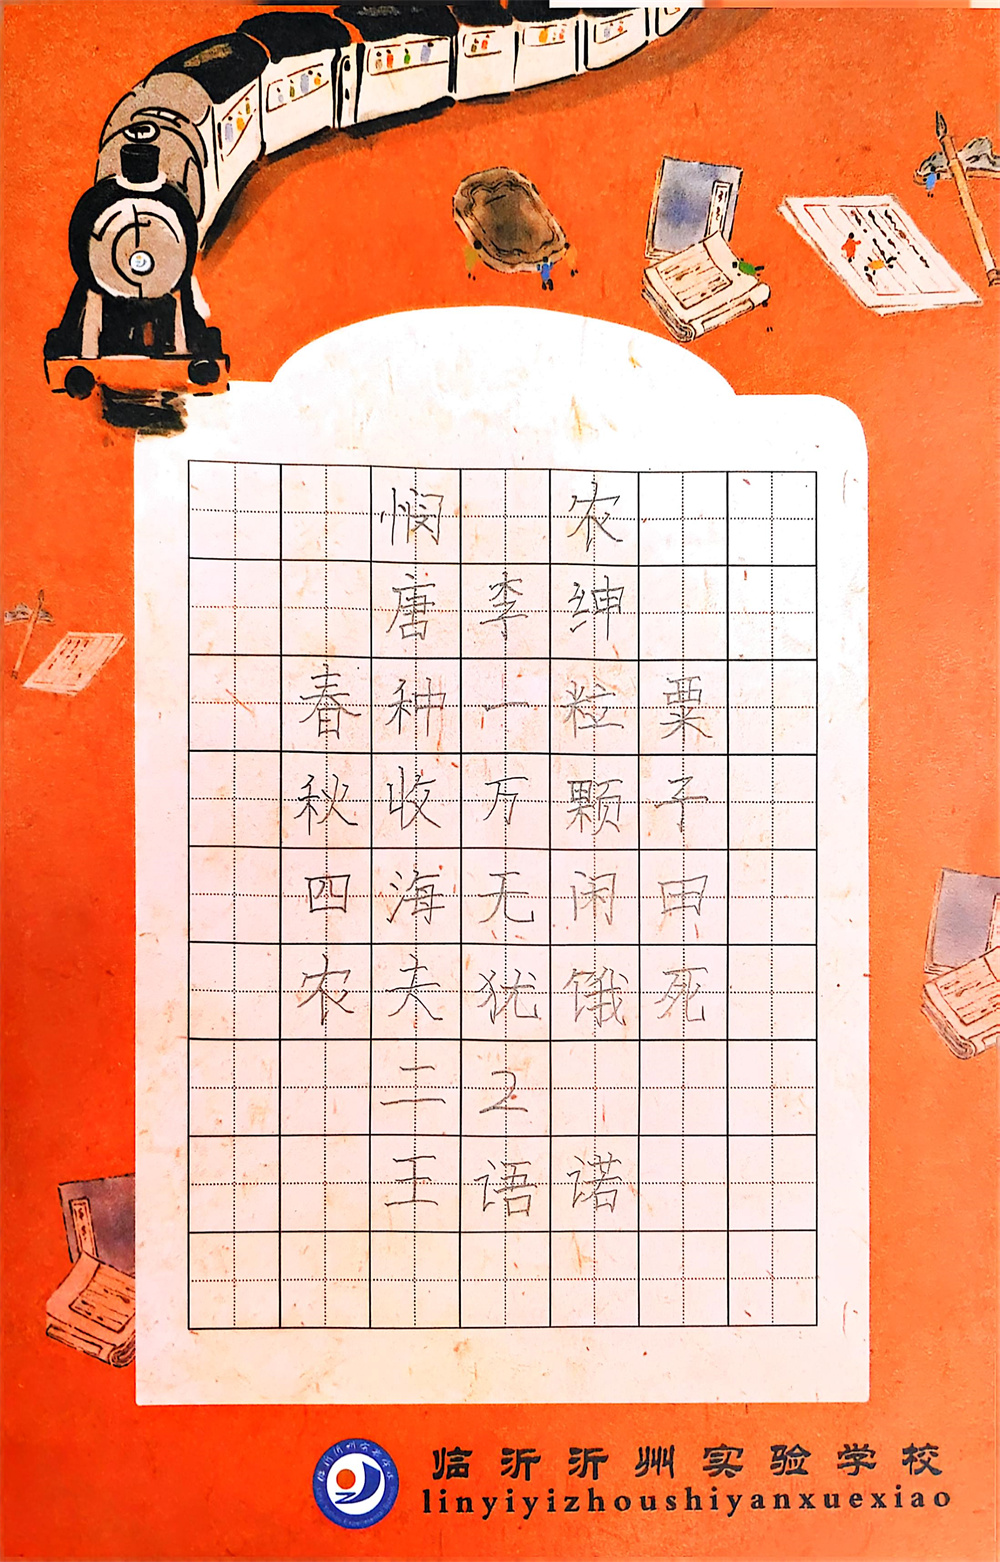 悯 农
唐 李 绅
春 种 一 粒 粟
秋 收 万 颗 子
四 海 无 闲 田
农 夫 犹 饿 死
二 2
王 语 诺
临沂沂州实验学校
linyiyizhoushiyanxuexiao